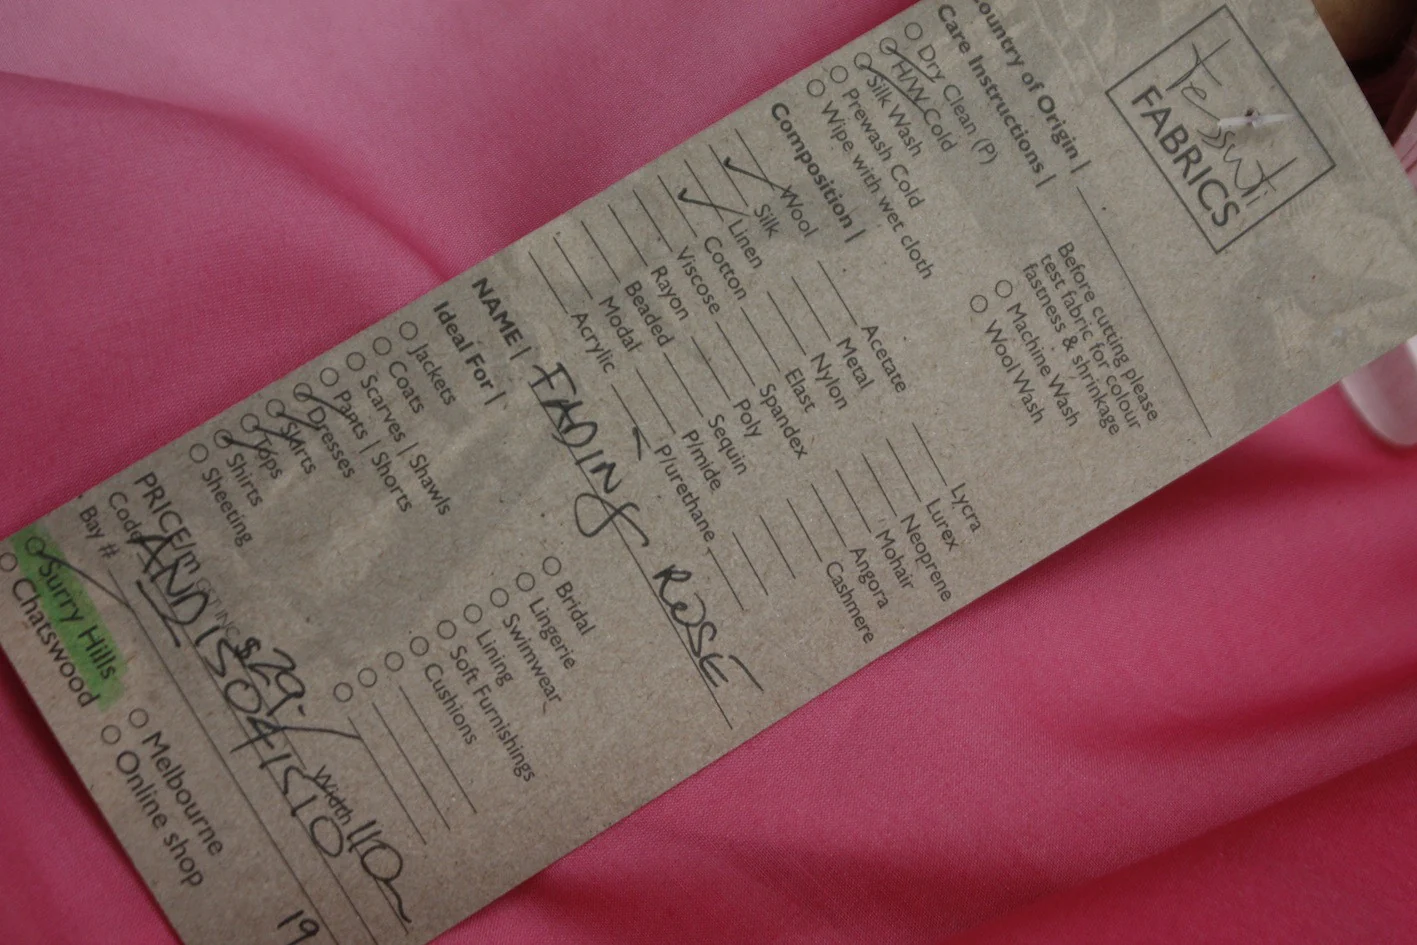 Tessuti
FABRICS
Country of Origin |
Care Instructions |
Dry Clean (P)
H/W Cold
Silk Wash
Prewash Cold
Wipe with wet cloth
Before cutting please
test fabric for colour
fastness & shrinkage
Machine Wash
Wool Wash
Composition |
Wool
Silk
Linen
Cotton
Viscose
Rayon
Beaded
Modal
Acrylic
Acetate
Metal
Nylon
Elast
Spandex
Poly
Sequin
P/mide
P/urethane
Lycra
Lurex
Neoprene
Mohair
Angora
Cashmere
NAME | FADING ROSE
Ideal For |
Jackets
Coats
Scarves | Shawls
Pants | Shorts
Dresses
Skirts
Tops
Shirts
Sheeting
Bridal
Lingerie
Swimwear
Lining
Soft Furnishings
Cushions
PRICE/m GST INC $29.- Width 110
Code AND15041510
Bay # 19
Surry Hills
Chatswood
Melbourne
Online shop